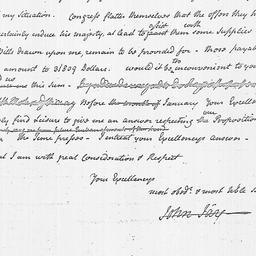 my Situation. Congress flatter themselves that the offers they h
certainly induce his majesty, at least to assist them with some Supplies
Bills drawn upon me, remain to be provided for - those payab
amount to 31809 Dollars. would it be too inconvenient to you
me this Sum -
before January your Excellen
find leisure to give me an answer respecting our Proposition
The Time presses - I entreat your Excellency's answer -
I am with great Consideration & Respect
Your Excellencys
most obedt. & most hble S
John Jay